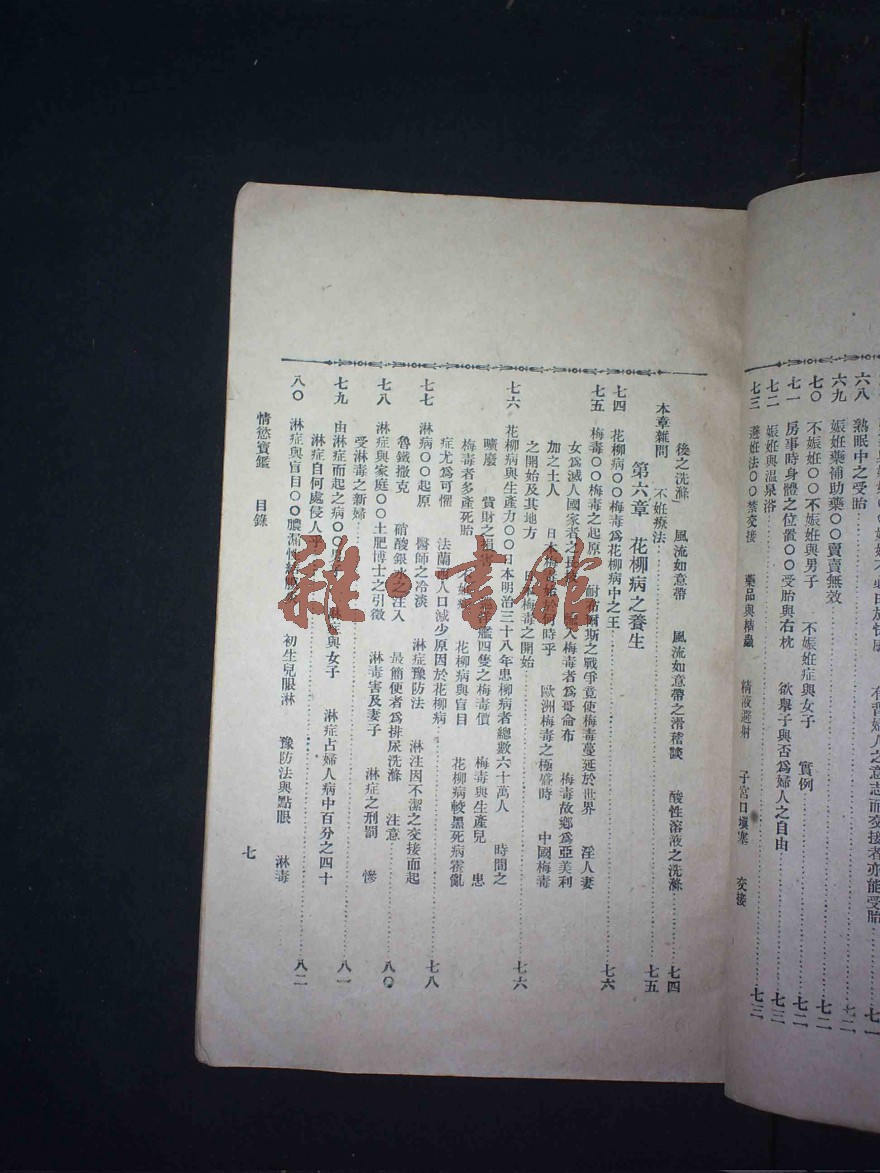 六八　熟眠中之受胎……七一
六九　娠妊藥補助藥〇〇賣賣無效……七二
七〇　不娠妊〇〇不娠妊與男子　不娠妊症與女子　實例……七二
七一　房事時身體之位置〇〇受胎與右枕　欲舉子與否爲婦人之自由……七二
七二　娠妊與溫泉浴……七三
七三　避妊法〇〇禁交接　藥品與　精液避射　子宮口塡塞　交接
後之洗滌」　風流如意帶　風流如意帶之滑稽談　酸性溶液之洗滌……七四
本章雜問　不妊療法……七五
第六章　花柳病之養生
七四　花柳病〇〇梅毒爲花柳病中之王……七六
七五　梅毒〇〇梅毒之起原　耐布爾斯之戰爭竟使梅毒蔓延於世界　淫人妻
女爲滅人國家者之長　人梅毒者爲哥侖布　梅毒故鄉爲亞美利
加之土人　日本梅毒始於何時乎　歐洲梅毒之極盛時　中國梅毒
之開始及其地方　梅毒之開始……七六
七六　花柳病與生產力〇〇日本明治三十八年患柳病者總數六十萬人　時間之
曠廢　貲財之損害　艦四隻之梅毒價　梅毒與生產兒　患
梅毒者多產死胎　花柳病與盲目　花柳病較黑死病霍亂
症尤爲可懼　法蘭西人口減少原因於花柳病……七八
七七　淋病〇〇起原　醫師之冷淡　淋症豫防法　淋注因不潔之交接而起
魯鐵撒克　硝酸銀水之注入　最簡便者爲排尿洗滌　注意……八〇
七八　淋症與家庭〇〇土肥博士之引徵　淋毒害及妻子　淋症之刑罰　慘
受淋毒之新婦
七九　由淋症而起之病〇〇男子　淋症與女子　淋症占婦人病中百分之四十
淋症自何處侵人乎……八一
八〇　淋症與盲目〇〇膿漏性結膜炎　初生兒眼淋　豫防法與點眼　淋毒……八二
情慾寶鑑　目錄
七
雜·書館